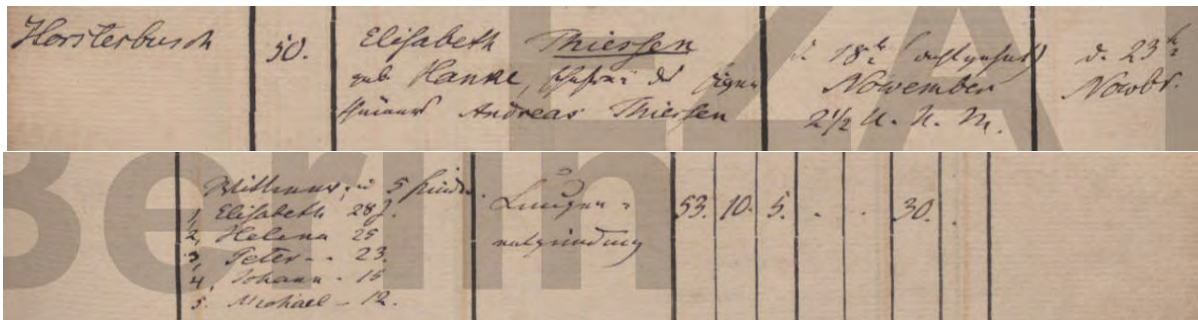 Horsterbusch
50.
Elisabeth Thiessen
geb. Hanne, Ehefrau des Eigen
thümers Andreas Thiessen
d. 18t (achtzehnt)
November
2½ U. N. M.
d. 23t
Novbr.
Wittwer, u 5 Kinder.
1, Elisabeth 28 J.
2, Helena 25
3, Peter - - 23.
4, Johann - 15
5. Michael - 12.
Lungen-
entzündung
53. 10. 5. . . 30. .
EZA
Berlin